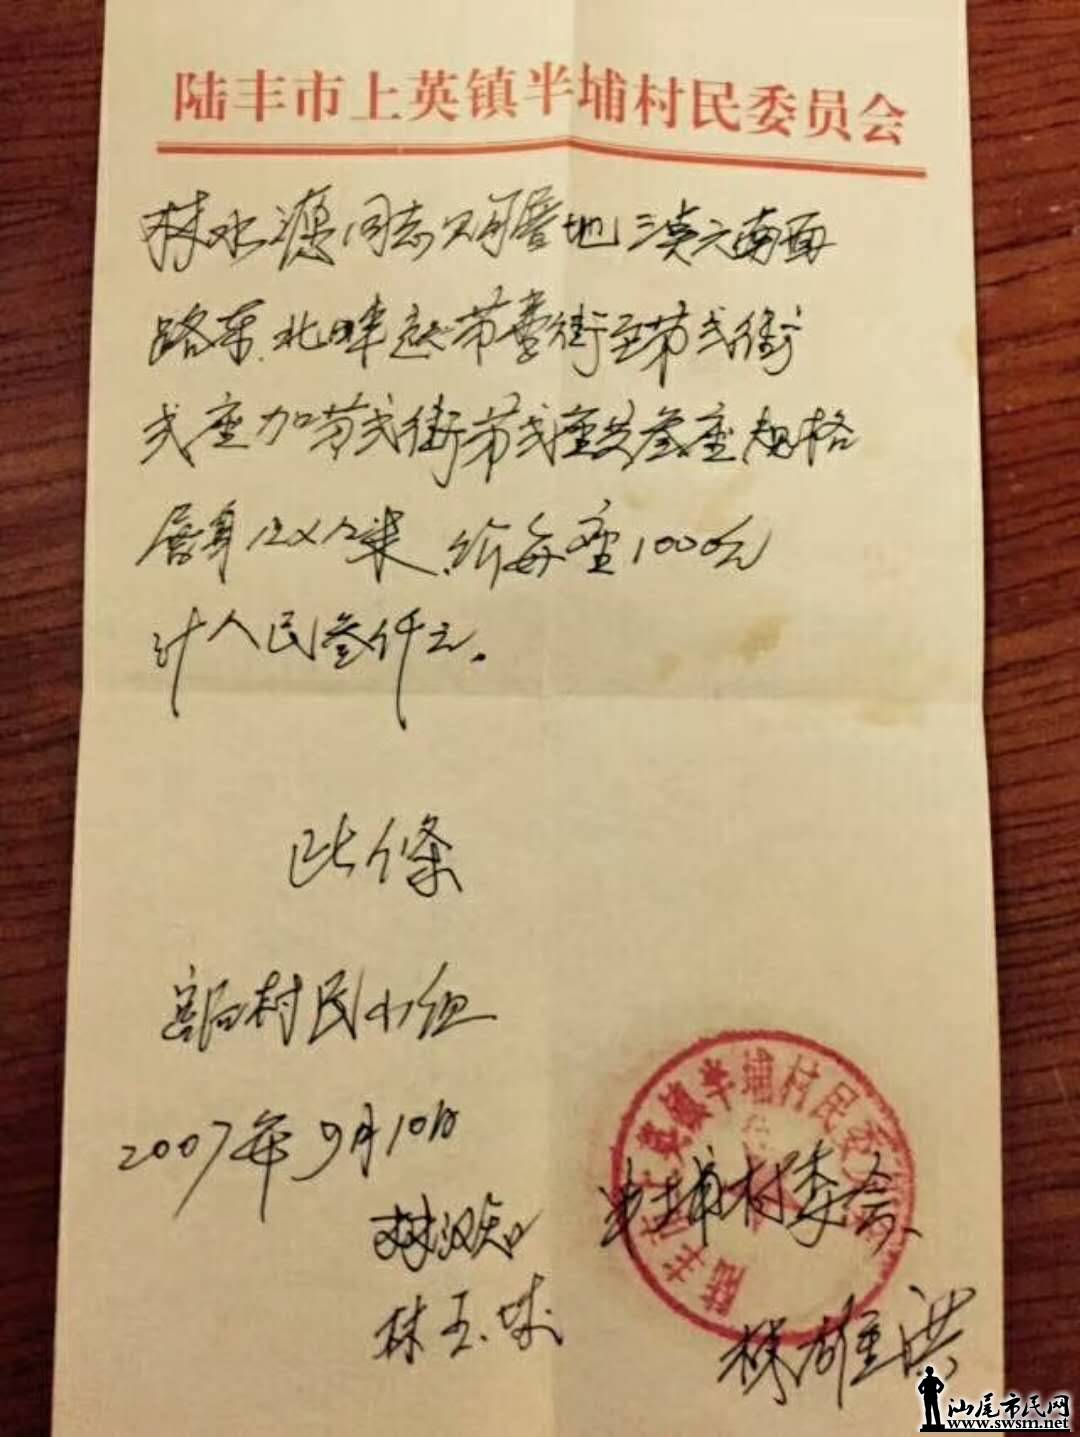 陆丰市上英镇半埔村民委员会
林水源同志 地 南面
路东.北畔起节壹街至节弍街
弍座加节弍街节弍座共叁座规格
厝身12X12米.价每座1000元
计人民叁仟元.
此條
村民小组
2007年9月10日
林汉知
林玉城
半埔村委会
林雄洪
陆丰市上英镇半埔村民委员会
汕尾市民网
www.swsm.net